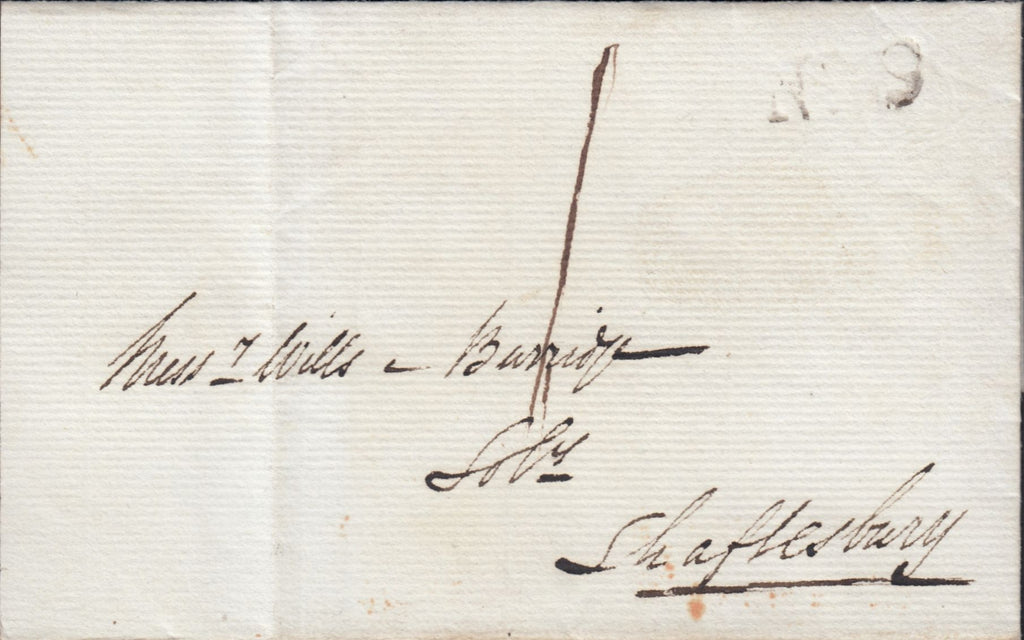 No 8
1
Messrs Wills & Burridge
Solrs
Shaftesbury